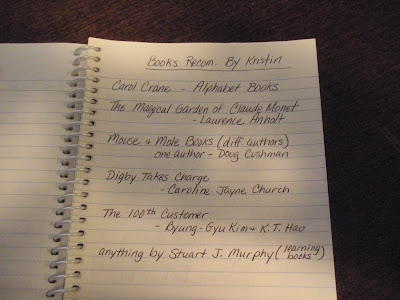 Books Recom. By Kristin
Carol Crane - Alphabet Books
The Magical Garden of Claude Monet
- Laurence Anholt
Mouse & Mole Books (diff. authors)
one author - Doug Cushman
Digby Takes Charge
- Caroline Jayne Church
The 100th Customer
- Byung-Gyu Kim & K.T. Hao
anything by Stuart J. Murphy (learning books)